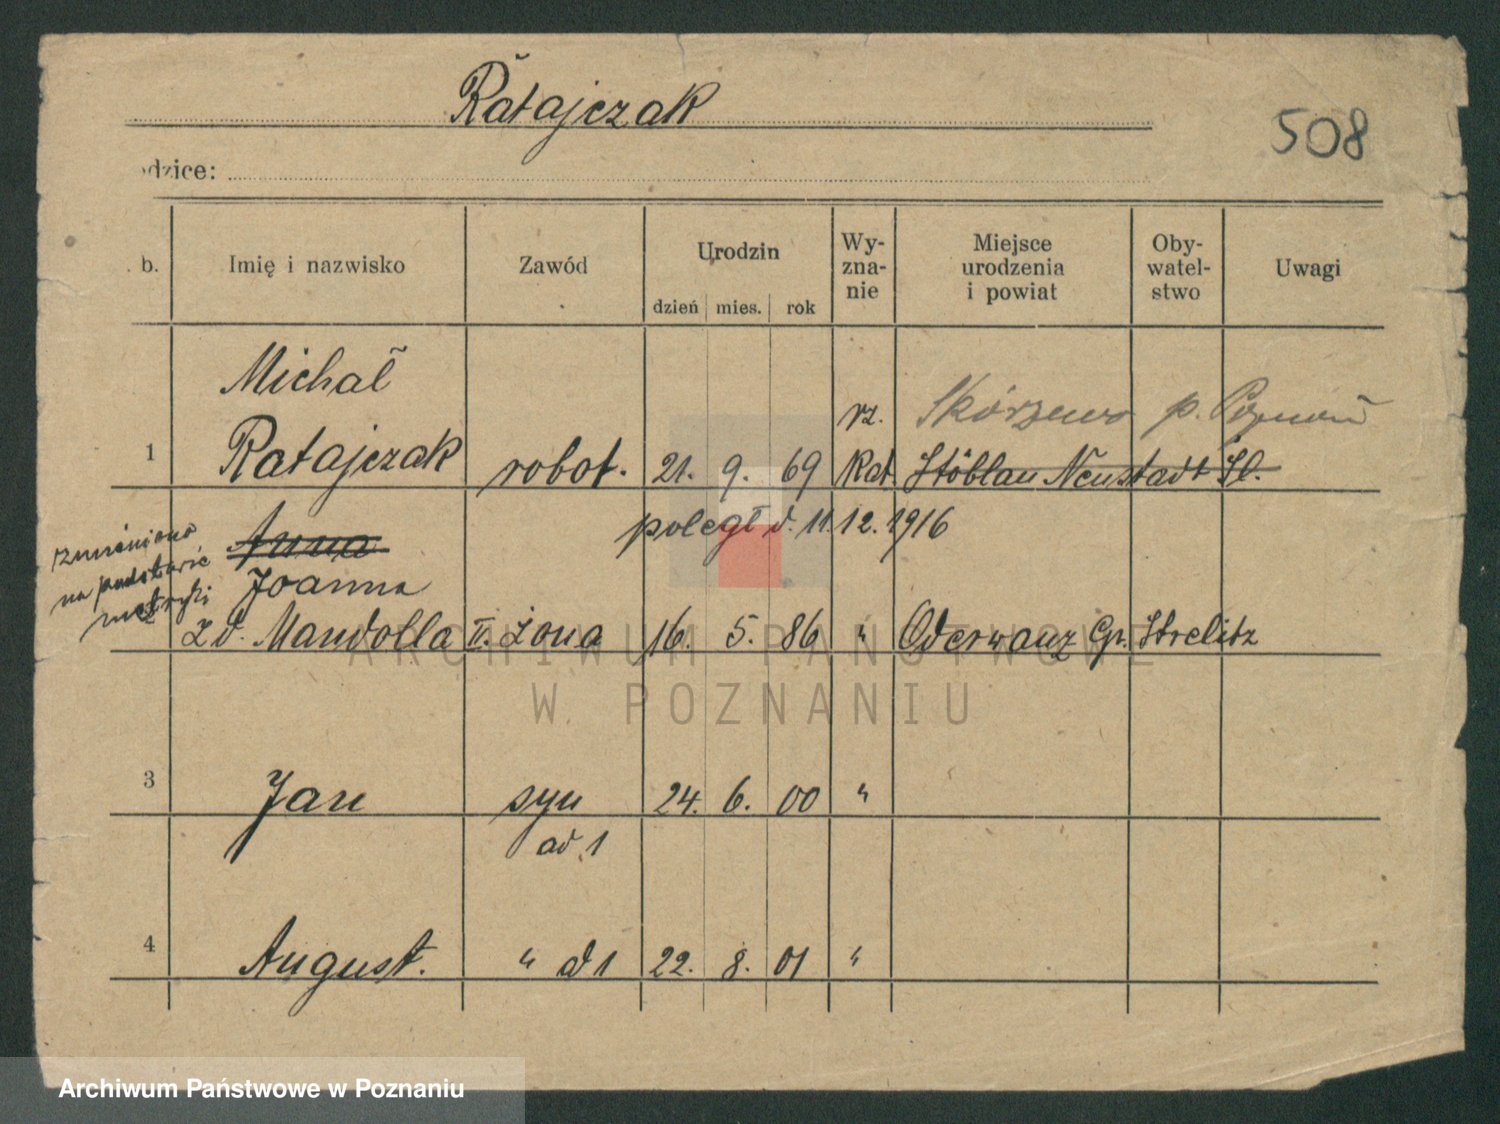 Ratajczak
508
odzice:
b. Imię i nazwisko Zawód Urodzin Wy-zna-nie Miejsce urodzenia i powiat Oby-watel-stwo Uwagi
dzień mies. rok
Michał
rz. Skórzewo p. Poznań
1 Ratajczak robot. 21. 9. 69 kat. Stöblau Neustadt Sl.
poległ d. 11. 12. 1916
zmieniono Anna
na podstawie Joanna
metryki
z d. Mandolla II. żona 16. 5. 86 " Oderwanz Gr. Strelitz
3 Jan syn 24. 6. 00 "
ad 1
4 August. " ad 1 22. 8. 01 "
ARCHIWUM PAŃSTWOWE
W POZNANIU
Archiwum Państwowe w Poznaniu